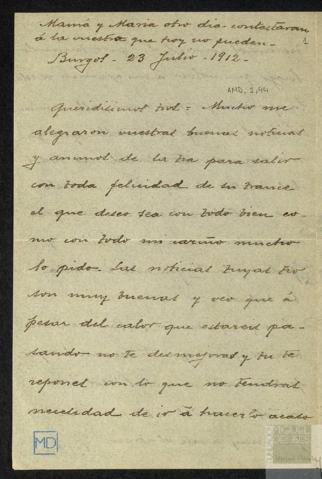 Mamá y María otro dia contestaran
á la vuestra que hoy no pueden-
Burgos - 23 Julio - 1912 -
AMD, 2,44
Queridisimos tios = Mucho me
alegraron vuestras buenas noticias
y animos de la tia para salir
con toda felicidad de su trance
el que deseo sea con todo bien co-
mo con todo mi cariño mucho
lo pido. Las noticias tuyas tio
son muy buenas y veo que á
pesar del calor que estareis pa-
sando no te desmejoras y tu te
repones con lo que no tendras
necesidad de ir á hacerlo acaso
MD